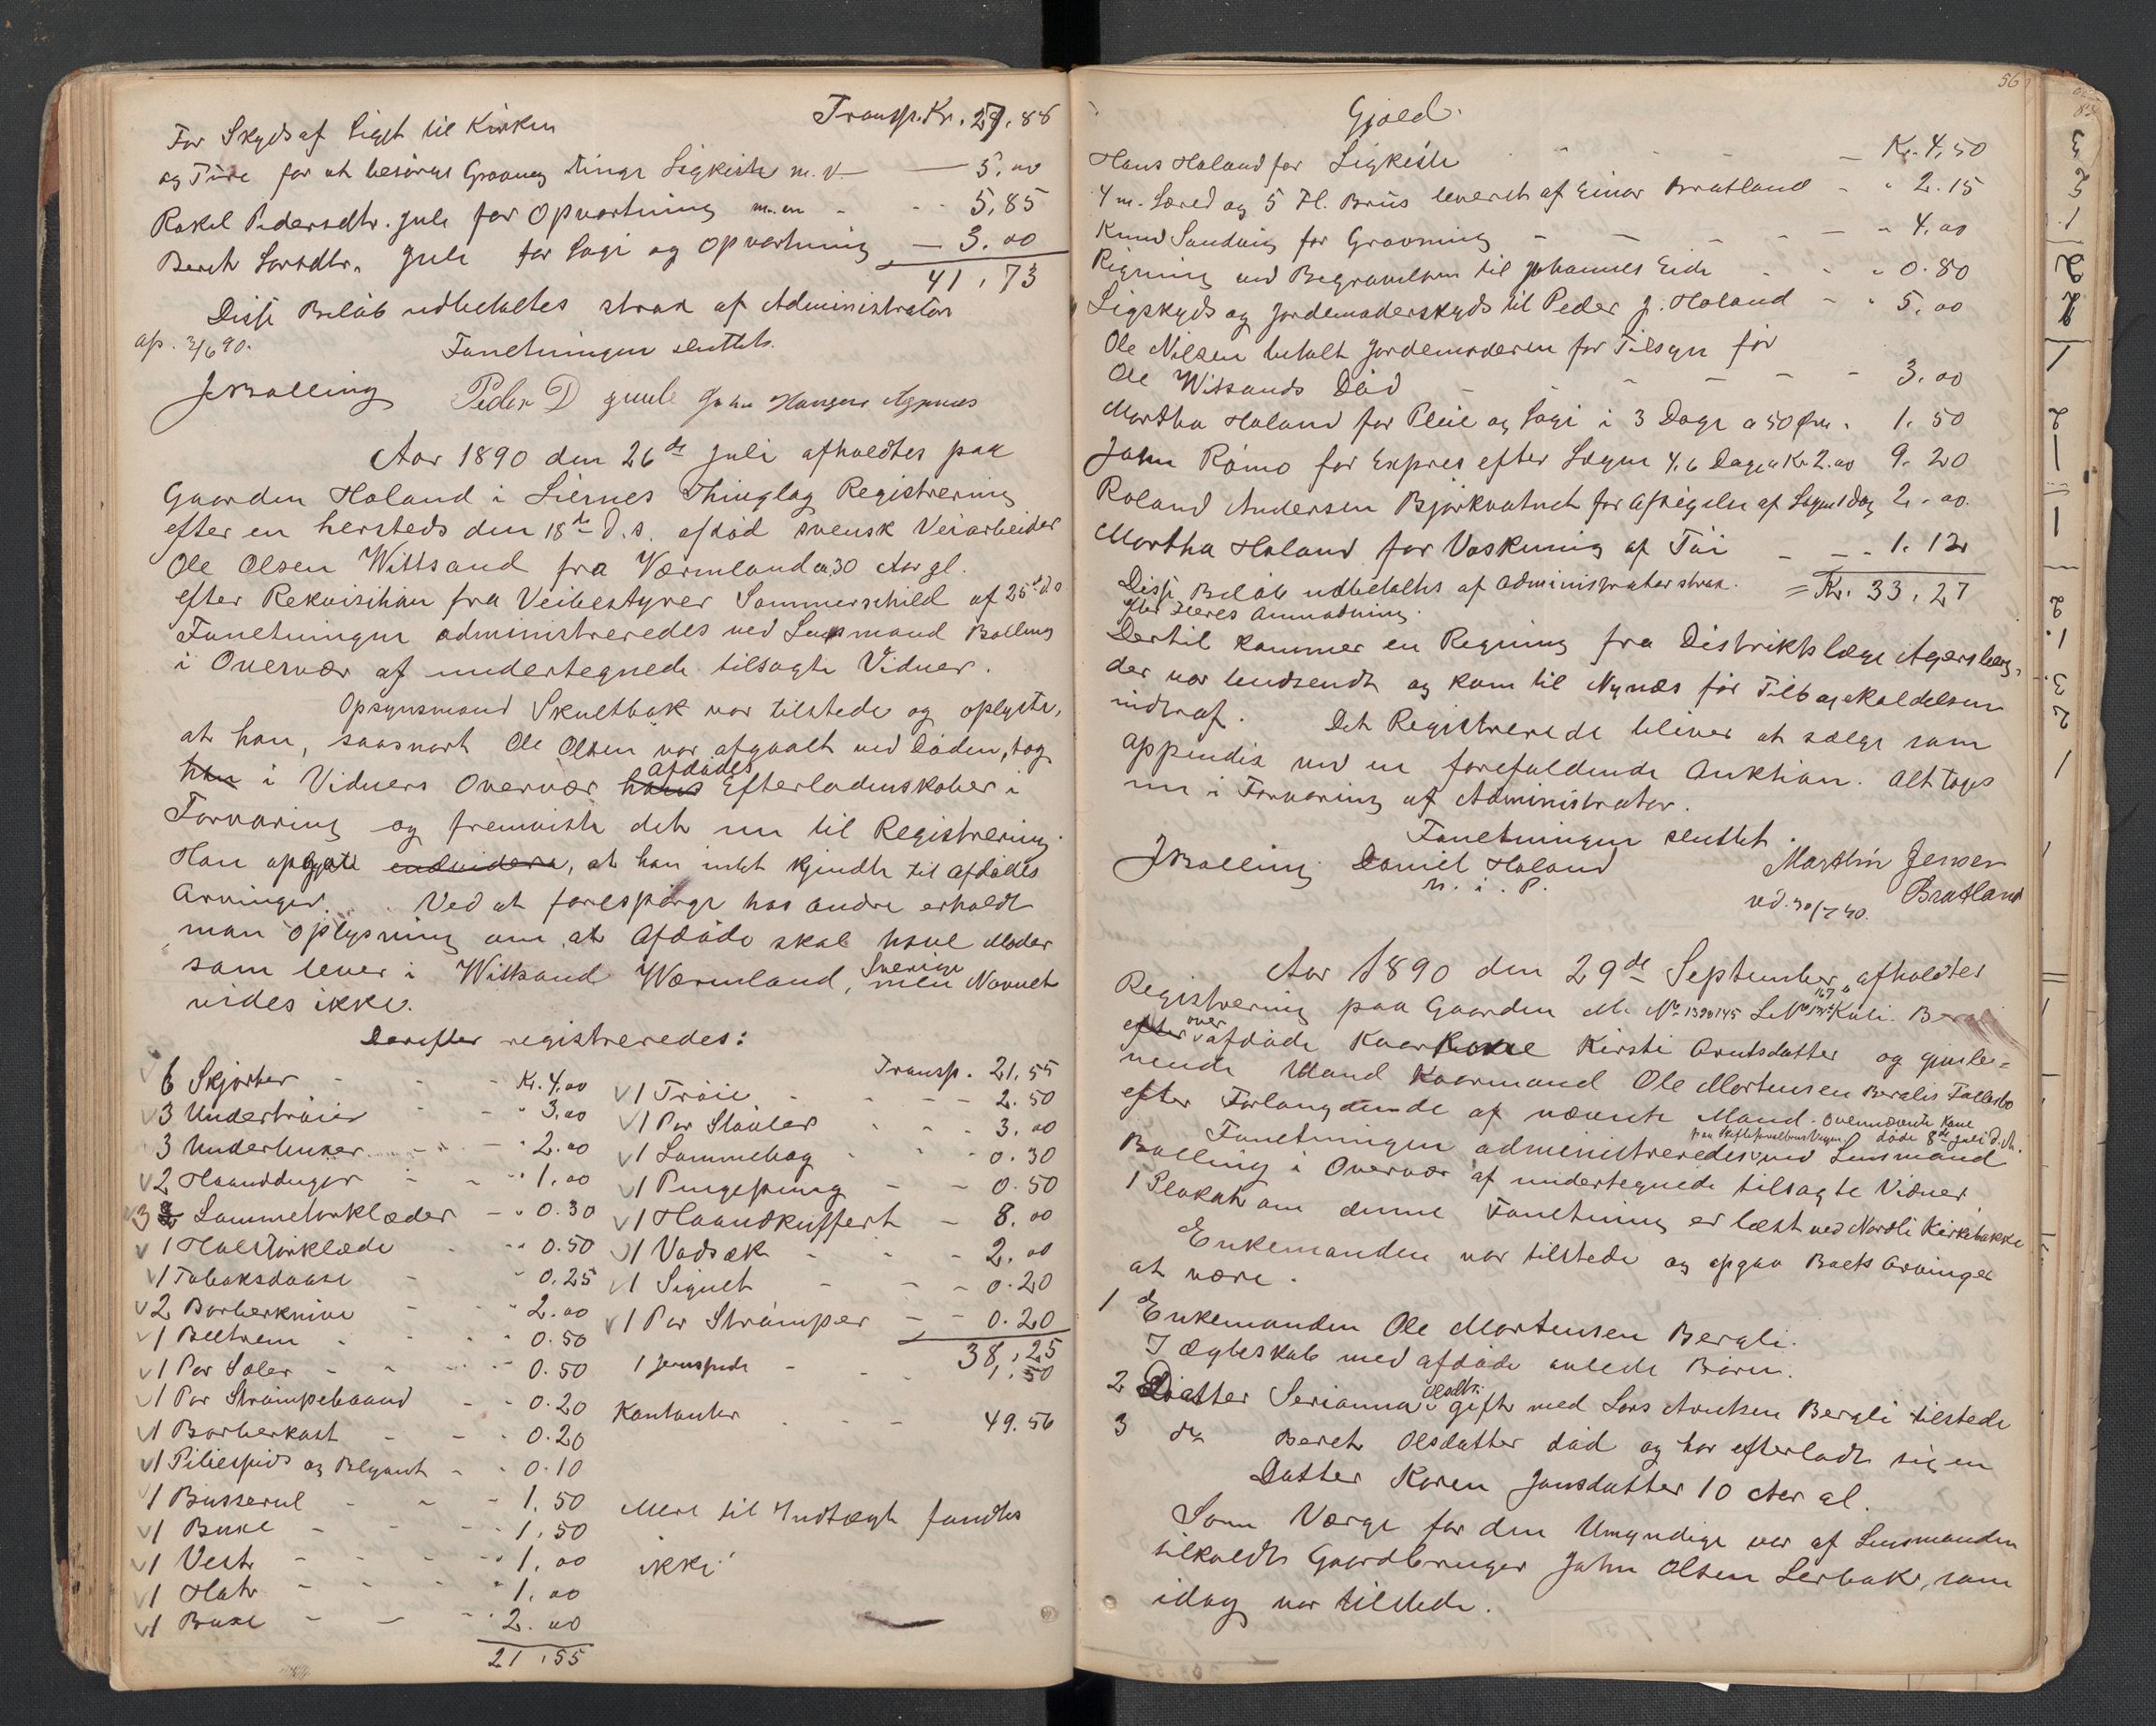 Transp. Kr. 27.88
For Skyds af Liget til Kirken
og Ture for at besörge Gravning ringe Ligkiste m. v. — 5.00
Rakel Pedersdtr. Jule for Opvartning m. m - - 5.85
Beret Larsdtr. Jule for Logi og Opvartning — 3.00
41.73
Disse Belöb udbetaltes strax af Administrator
Forretningen sluttet.
JBalling Peder D Juule
Aar 1890 den 26de Juli afholdtes paa
Gaarden Holand i Liernes Thinglag Registrering
efter en hersteds den 18de d. s. afdöd svensk Veiarbeider
Ole Olsen Wittsand fra Værmland ca. 30 Aar gl.
efter Rekvisition fra Veibestyrer Sommerschild af 25de ds
Forretningen administreredes ved Lensmand Balling
i Overvær af undertegnede tilsagte Vidner.
Opsynsmand Skultbak var tilstede og oplyste,
at han, saasnart Ole Olsen var afgaaet ved Döden, tog
han i Vidners Overvær hans afdödes Efterladenskaber i
Forvaring og fremviste det nu til Registrering.
Han opgav endvidere, at han intet kjendte til Afdödes
Arvinger. Ved at forespörge hos andre erholdt
man oplysning om, at Afdöde skal have Moder
som lever i Witsand Wærmland, Sverige men Navnet
vides ikke.
Derefter registreredes:
6 Skjorter - - Kr. 4.00
3 Undertröier - - 3.00
3 Underbuxer - - 2.00
2 Haandduger - - 1.00
3 Lommetörklæder - 0.30
1 Halstörklæde - 0.50
1 Tobaksdaase - 0.25
2 Barberknive - 2.00
1 Beltrem - - 0.50
1 Par Sæler - - 0.50
1 Par Strömpebaand - 0.20
1 Barberkost - - 0.20
1 Pibespids og Blyant - 0.10
1 Busserul - - 1.50
1 Buxe - - 1.50
1 Vest - - 1.00
1 Hat - - 1.00
1 Buxe - - 2.00
21.55
Transp. 21.55
1 Tröie - - 2.50
1 Par Stövler - - 3.00
1 Lommebog - - 0.30
1 Pengepung - - 0.50
1 Haandkuffert - 8.00
1 Vadsæk - - 2.00
1 Signet - - 0.20
1 Par Strömper - - 0.20
38.25
1 Jernspade - - 1.50
Kontanter - - 49.56
Mere til Indtægt fandtes
ikke
56
Gjæld.
Hans Holand for Ligkiste - - Kr. 4.50
4 m. Læred og 5 Fl. Brus leveret af Einar Bratland - " 2.15
Knud Sandvig for Gravning - - - " 4.00
Rigning ved Begravelsen til Johannes Eide - - " 0.80
Ligskyds og Jordemoderskyds til Peder J. Holand - " 5.00
Ole Nilsen betalt Jordemoderen for Tilsyn för
Ole Witsands Död - - - - 3.00
Martha Holand for Pleie og Logi i 3 Dage a 50 Öre. 1.50
John Römo for Expres efter Lægen 4,6 Dage a Kr 2.00 9.20
Roland Andersen Björkvatnet for Afsigelse af Lægen 1 dag 2.00.
Martha Holand for Vaskning af Töi - - 1.12
Disse Belöb udbetaltes af Administrator strax. = Kr. 33.27
efter Deres Anmodning.
Dertil kommer en Regning fra Distriktslæge Agersborg,
der var budsendt og kom til Nynæs för Tilbagekaldelsen
indtraf. Det Registrerede bliver at sælge som
appendix ved en forefaldende Auktion. Alt toges
nu i Forvaring af Administrator.
Forretningen sluttet.
JBalling Daniel Holand Marthin Jensen
m. i. P. Bratland
Aar 1890 den 29de September afholdtes
Registrering paa Gaarden M. No 139a145 LNo 167 Kveli Bergli
efter over afdöde Kaarkone Kirsti Arntsdatter og gjenle-
vende Mand Kaarmand Ole Mortensen Berglis Fællesbo
efter Forlangende af nævnte Mand. Ovennævnte Kone
döde 8de Juli d. A.
Forretningen administreredes paa Skifteforvalterens Vegne ved Lensmand
Balling i Overvær af undertegnede tilsagte Vidner.
1 Plakat om denne Forretning er læst ved Nordli Kirkebakke
Enkemanden var tilstede og opgav Boets Arvinger
at være.
1 Enkemanden Ole Mortensen Bergli.
I Ægteskab med afdöde avlede Börn.
2 Datter Serianna Olsdtr. gift med Lars Arntsen Bergli tilstede
3 do Beret Olsdatter död og har efterladt sig en
Datter Karen Jonsdatter 10 Aar gl.
Som Værge for den Umyndige var af Lensmanden
tilkaldt Gaardbruger John Olsen Lerbak, som
idag var tilstede.